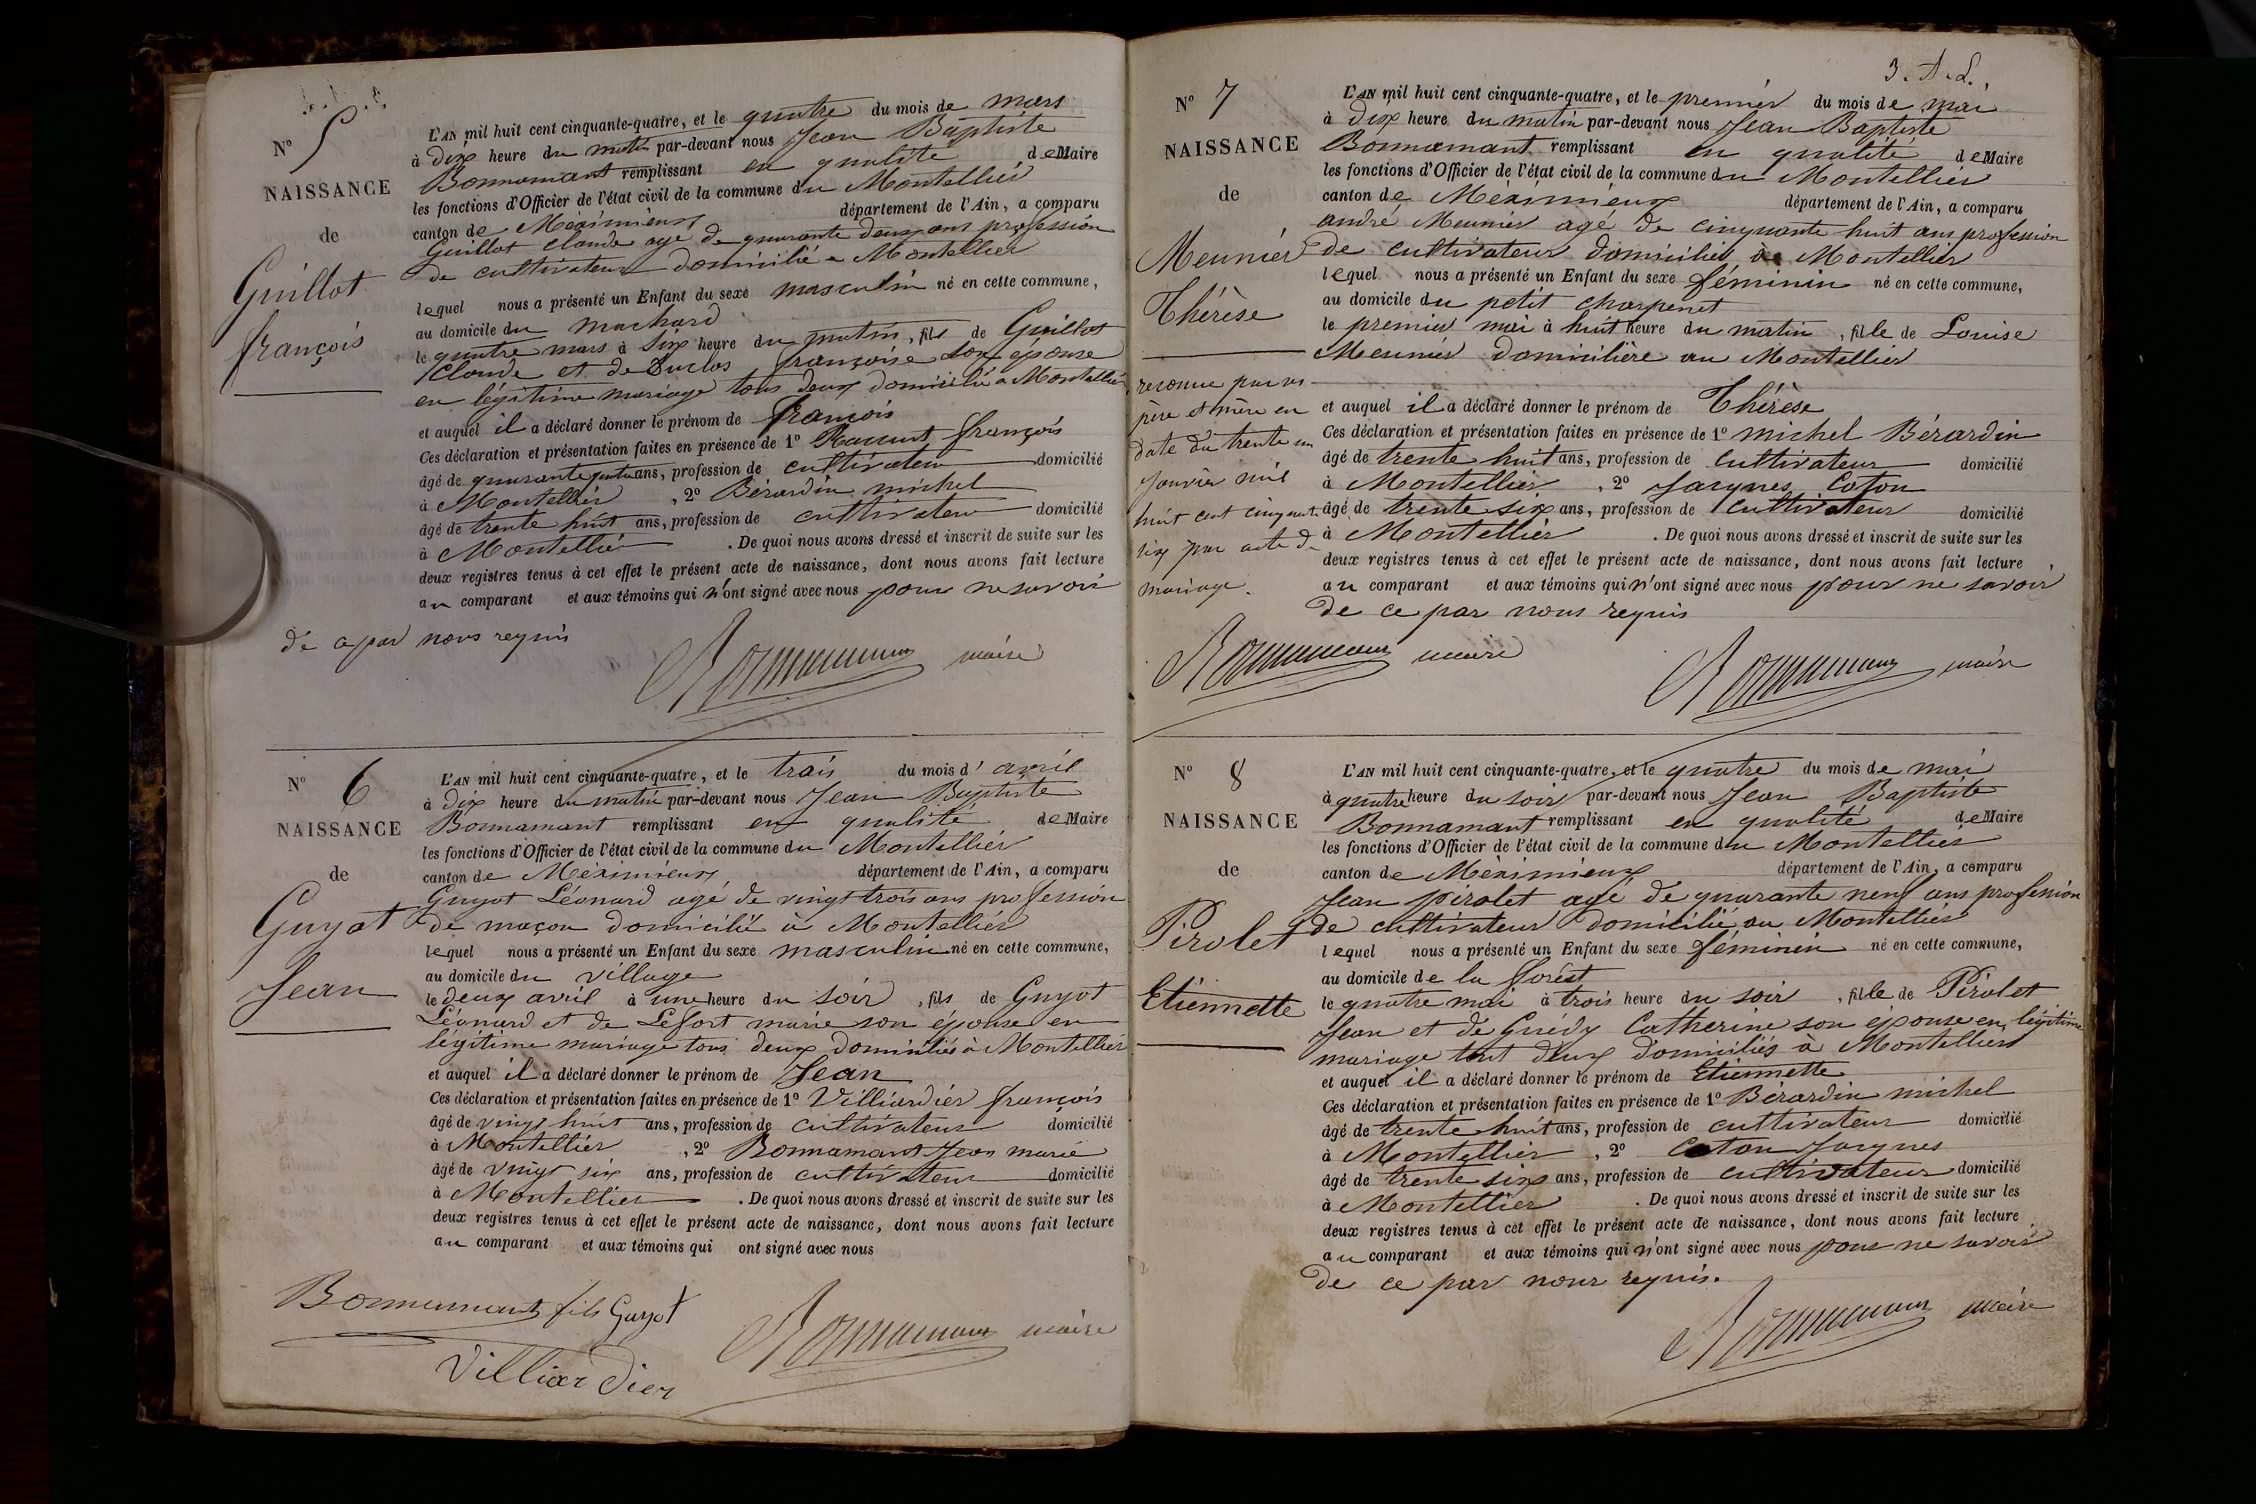 N° 5
NAISSANCE
de
Guillot
françois
L'AN mil huit cent cinquante-quatre, et le quatre du mois de mars
à dix heure du matin par-devant nous Jean Baptiste
Bonnamant remplissant en qualité de Maire
les fonctions d'Officier de l'état civil de la commune du Montellier
canton de Méximieux département de l'Ain, a comparu
Guillot Claude agé de quarante deux ans profession
de cultivateur domicilié a Montellier
lequel nous a présenté un Enfant du sexe masculin né en cette commune,
au domicile du machard
le quatre mars à six heure du matin, fils de Guillot
Claude et de Duclos françoise son épouse
en légitime mariage tous deux domicilié a Montellier
et auquel il a déclaré donner le prénom de françois
Ces déclaration et présentation faites en présence de 1° françois
âgé de quarante ans, profession de cultivateur domicilié
à Montellier, 2° Bérardin michel
âgé de trente huit ans, profession de cultivateur domicilié
à Montellier. De quoi nous avons dressé et inscrit de suite sur les
deux registres tenus à cet effet le présent acte de naissance, dont nous avons fait lecture
au comparant et aux témoins qui n'ont signé avec nous pour ne savoir
de ce par nous requis
Bonnamant maire
N° 6
NAISSANCE
de
Guyot
Jean
L'AN mil huit cent cinquante-quatre, et le trois du mois d'avril
à dix heure du matin par-devant nous Jean Baptiste
Bonnamant remplissant en qualité de Maire
les fonctions d'Officier de l'état civil de la commune du Montellier
canton de Méximieux département de l'Ain, a comparu
Guyot Léonard agé de vingt trois ans profession
de maçon domicilié à Montellier
lequel nous a présenté un Enfant du sexe masculin né en cette commune,
au domicile du village
le deux avril à une heure du soir, fils de Guyot
Léonard et de Lefort marie son épouse en
légitime mariage tous deux domiciliés à Montellier
et auquel il a déclaré donner le prénom de Jean
Ces déclaration et présentation faites en présence de 1° Villiardier françois
âgé de vingt huit ans, profession de cultivateur domicilié
à Montellier, 2° Bonnamant Jean marie
âgé de vingt six ans, profession de cultivateur domicilié
à Montellier. De quoi nous avons dressé et inscrit de suite sur les
deux registres tenus à cet effet le présent acte de naissance, dont nous avons fait lecture
au comparant et aux témoins qui ont signé avec nous
Bonnamant fils Guyot
Bonnamant maire
Villiardier
3. A. L.
N° 7
NAISSANCE
de
Meunier
Thérèse
reconnue par ses
père et mère en
date du trente un
Janvier mil
huit cent cinquante
six par acte de
mariage.
Bonnamant maire
L'AN mil huit cent cinquante-quatre, et le premier du mois de mai
à dix heure du matin par-devant nous Jean Baptiste
Bonnamant remplissant en qualité de Maire
les fonctions d'Officier de l'état civil de la commune du Montellier
canton de Méximieux département de l'Ain, a comparu
andré Meunier agé de cinquante huit ans profession
de cultivateur domicilié à Montellier
lequel nous a présenté un Enfant du sexe féminin né en cette commune,
au domicile du petit charpenet
le premier mai à huit heure du matin, fille de Louise
Meunier domicilière au Montellier
et auquel il a déclaré donner le prénom de Thérèse
Ces déclaration et présentation faites en présence de 1° michel Bérardin
âgé de trente huit ans, profession de cultivateur domicilié
à Montellier, 2° Jacques Coton
âgé de trente six ans, profession de cultivateur domicilié
à Montellier. De quoi nous avons dressé et inscrit de suite sur les
deux registres tenus à cet effet le présent acte de naissance, dont nous avons fait lecture
au comparant et aux témoins qui n'ont signé avec nous pour ne savoir
de ce par nous requis
Bonnamant maire
N° 8
NAISSANCE
de
Pirolet
Etiennette
L'AN mil huit cent cinquante-quatre, et le quatre du mois de mai
à quatre heure du soir par-devant nous Jean Baptiste
Bonnamant remplissant en qualité de Maire
les fonctions d'Officier de l'état civil de la commune du Montellier
canton de Méximieux département de l'Ain, a comparu
Jean pirolet agé de quarante neuf ans profession
de cultivateur domicilié au Montellier
lequel nous a présenté un Enfant du sexe féminin né en cette commune,
au domicile de la forêst
le quatre mai à trois heure du soir, fille de Pirolet
Jean et de Guédy Catherine son épouse en légitime
mariage tout deux domiciliés à Montellier
et auquel il a déclaré donner le prénom de Etiennette
Ces déclaration et présentation faites en présence de 1° Bérardin michel
âgé de trente huit ans, profession de cultivateur domicilié
à Montellier, 2° Coton Jacques
âgé de trente six ans, profession de cultivateur domicilié
à Montellier. De quoi nous avons dressé et inscrit de suite sur les
deux registres tenus à cet effet le présent acte de naissance, dont nous avons fait lecture
au comparant et aux témoins qui n'ont signé avec nous pour ne savoir
de ce par nour requis.
Bonnamant maire